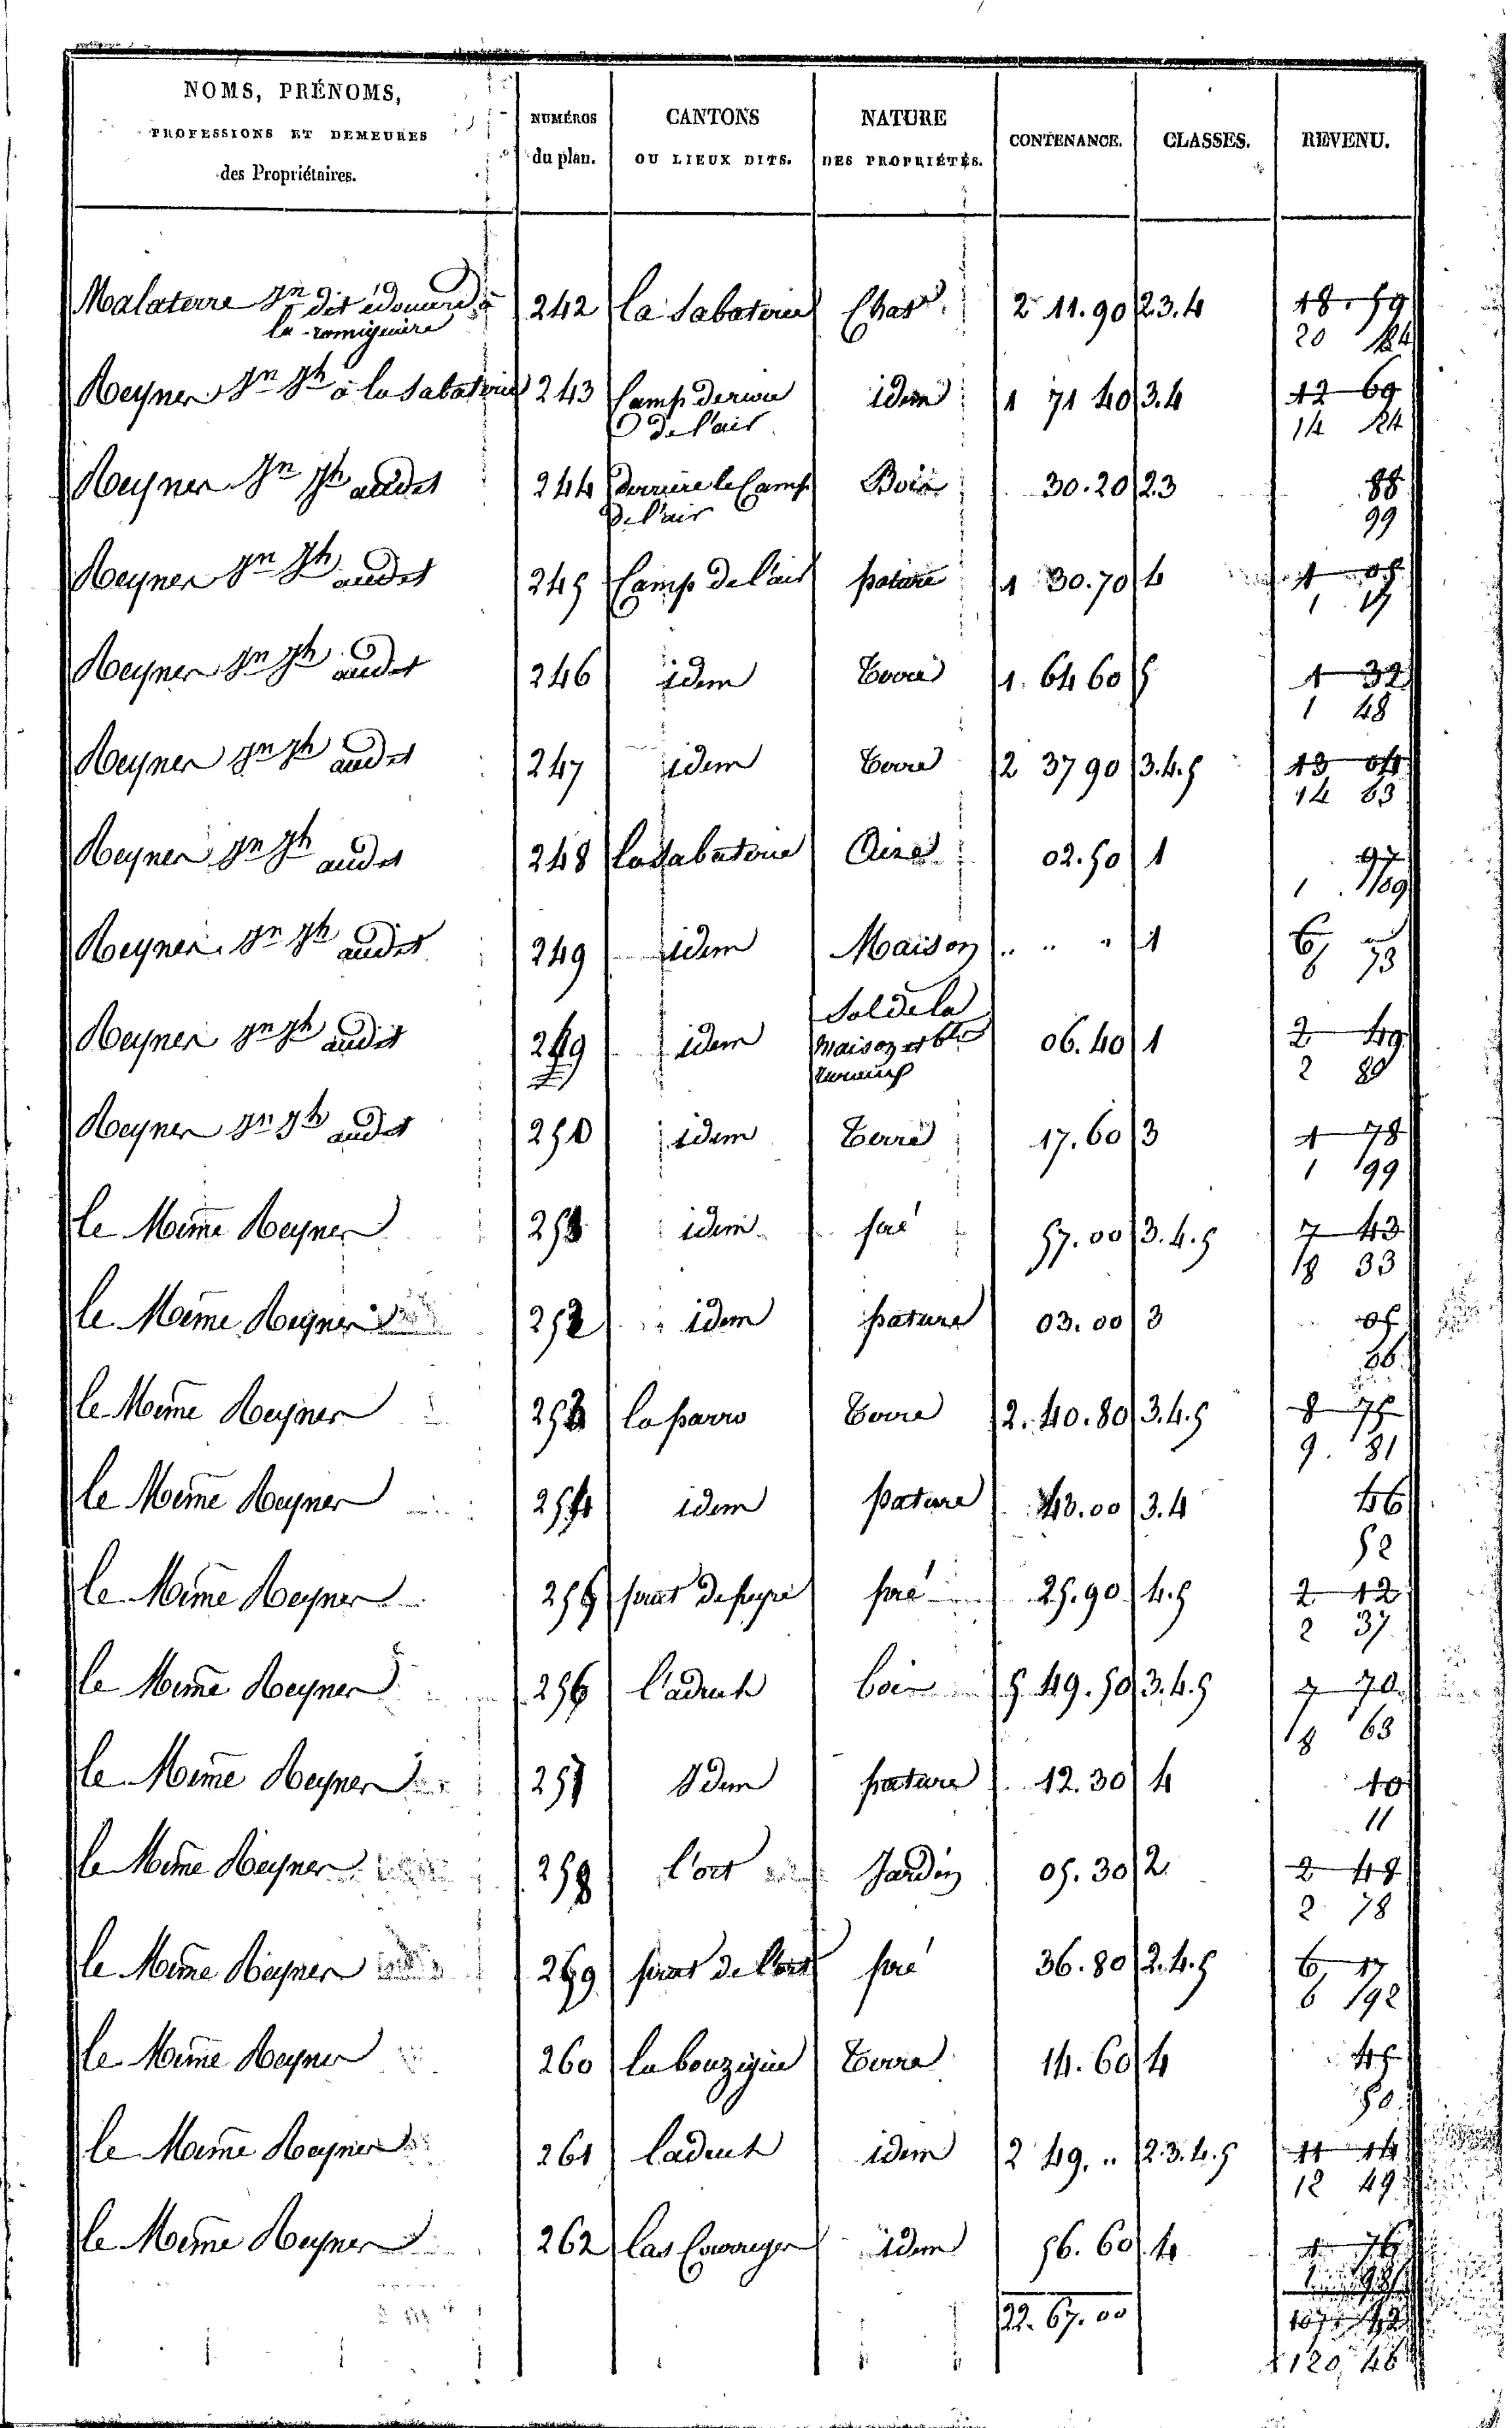 NOMS, PRÉNOMS,
PROFESSIONS ET DEMEURES
des Propriétaires.
NUMÉROS
du plan.
CANTONS
OU LIEUX DITS.
NATURE
DES PROPRIÉTÉS.
CONTENANCE.
CLASSES.
REVENU.
Malaterre Jn dit édouard à 242 la Sabaterie Chatr. 2 11.90 2.3.4 18.59
la romiguiere 20 84
Reynes Jn Jh à la Sabaterie 243 Camp deriere idem 1 71 40 3.4 12 69
de l'air 14 24
Reynes Jn Jh audit 244 derriere le Camp Bois 30.20 2.3 88
de l'air 99
Reynes Jn Jh audit 245 Camp de l'air pature 1 30.70 4 1 05
1 17
Reynes Jn Jh audit 246 idem Terre 1. 64 60 5 1 32
1 48
Reynes Jn Jh audit 247 idem Terre 2 37 90 3.4.5 13 04
14 63
Reynes Jn Jh audit 248 la Sabaterie Aire 02.50 1 97
1 09
Reynes Jn Jh audit 249 idem Maison .. .. .. 1 6
6 73
Sol de la
Reynes Jn Jh audit 249 idem maison et 06.40 1 2 49
2 80
Reynes Jn Jh audit 250 idem Terre 17.60 3 1 78
1 99
le Meme Reynes 251 idem pré 57.00 3.4.5 7 43
8 33
le Meme Reynes 252 idem pature 03.00 3 05
06
le Meme Reynes 253 la parro Terre 2.40.80 3.4.5 8 75
9. 81
le Meme Reynes 254 idem pature 43.00 3.4 46
52
le Meme Reynes 255 prat de peyre pré 25.90 4.5 2 12
2 37
le Meme Reynes 256 l'adrech bois 5 49.50 3.4.5 7 70
8 63
le Meme Reynes 257 Idem pature 12.30 4 10
11
le Meme Reynes 258 l'ort Jardin 05.30 2 2 48
2 78
le Meme Reynes 259 prat de l'ort pré 36.80 2.4.5 6 17
6 92
le Meme Reynes 260 la bouzigue Terre 14.60 4 45
50
le Meme Reynes 261 l'adrech idem 2 49. .. 2.3.4.5 11 14
12 49
le Meme Reynes 262 las idem 56.60 4 1 76
22.67.00
120, 46